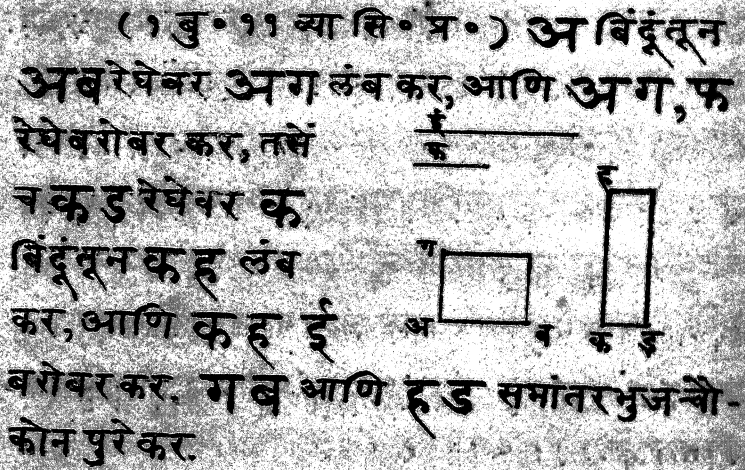 (१ बु॰ ११ व्या सि॰ प्र॰) अ बिंदूंतून
अब रेघेवर अग लंब कर, आणि अग, फ
रेघेबरोबर कर, तसें
च कड रेघेवर क
बिंदूंतून कह लंब
कर, आणि कह ई
बरोबर कर. गब आणि हड समांतरभुज चौ-
कोन पुरे कर.
ई
फ
ह
ग
अ
ब
क
ड